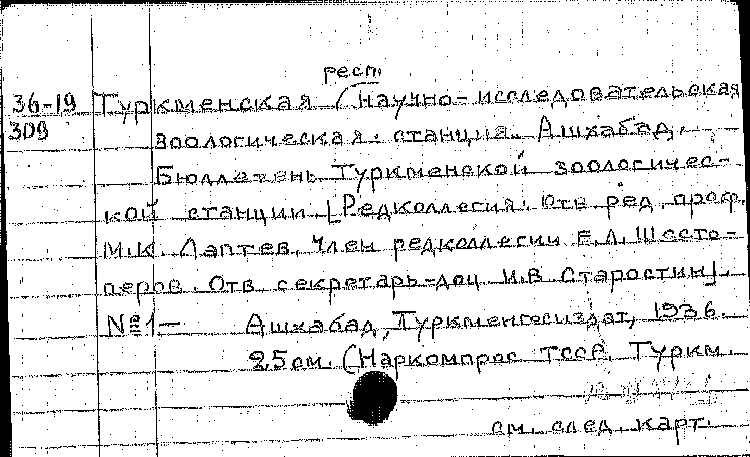 рест.
36-19 Туркменская (научно-исследовательская
309 зоологическая станция. Ашхабад.
Бюллетень Туркменской зоологичес-
кой станции. [Редколлегия: Отв. ред. проф.
М.К. Лаптев. Член редколлегии Е.Л. Шосто-
перов. Отв. секретарь-доц. И.В. Старостин].
№1— Ашхабад, Туркменгосиздат, 1936.
25 см. (Наркомпрос ТССР. Туркм.
см. след. карт.